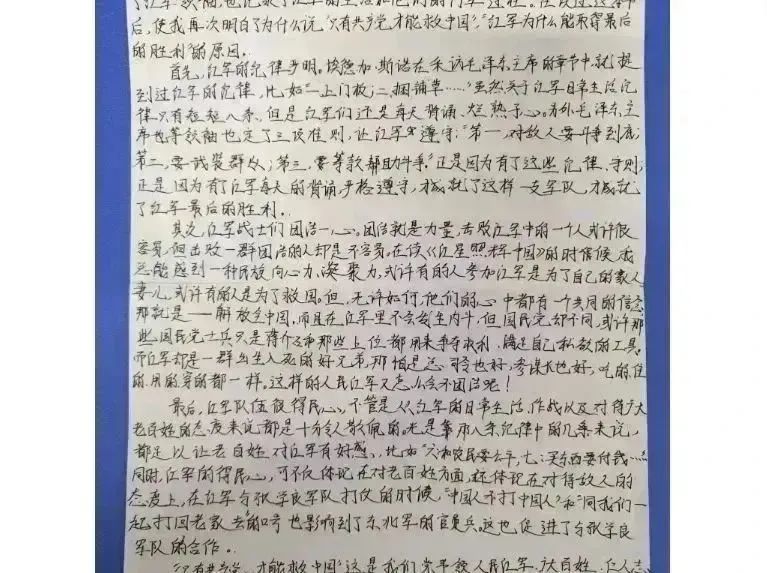 了红军铁袖，也记录了红军的生活和他们的
后，使我再次明白了为什么说"只有共产党才能救中国"，"红军为什么能取得最后
的胜利"的原因。
首先，红军的纪律严明。埃德加·斯诺在采访毛泽东主席的章节中，就提
到过红军的纪律，比如"一、上门板；二、捆铺草……"虽然关于红军日常生活纪
律只有短短八条，但是红军们还是每天背诵，烂熟于心。另外毛泽东主
席也等铁袖也定了三项准则，让红军遵守："第一，对敌人要斗争到底；
第二，要武装群众；第三，要筹款帮助斗争。"正是因为有了这些纪律、守则；
正是因为有了红军每天的背诵，严格遵守，才成就了这样一支军队，才成就
了红军最后的胜利。
其次，红军战士们团结一心。团结就是力量，击败红军中的一个人或许很
容易，但击败一群团结的人却是不容易。在读《红星照耀中国》的时候候，我
总能感到一种民族向心力、凝聚力，或许有的人参加红军是为了自己的家人
妻儿，或许有的人是为了救国。但，无许如何，他们的心中都有一个共同的信念
那就是——解放全中国，而且在红军里不会发生内斗，但国民党却不同，或许那
些国民党士兵只是蒋介石和那些上位都用来争夺权利，满足自己私欲的工具。
而红军却是一群出生入死的好兄弟，那怕是总司令也好，参谋长也好，吃的、住
的、用的、穿的都一样。这样的人民红军又怎么会不团结呢！
最后，红军队伍很得民心。不管是从红军的日常生活、作战以及对待广大
老百姓的态度来说都是十分令人敬佩的。光是拿那八条纪律中的几条来说，
都足以让老百姓对红军有好感，比如"六：和农民要公平，七：买东西要付钱……"
同时，红军的得民心，可不仅体现在对老百姓方面，还体现在对待敌人的
态度上，在红军与张学良军队打仗的时候，"中国人不打中国人"和"同我们一
起，打回老家去"的口号也影响到了东北军的官员兵。这也促进了与张学良
军队的合作。
"只有共产党，才能救中国"这是我们